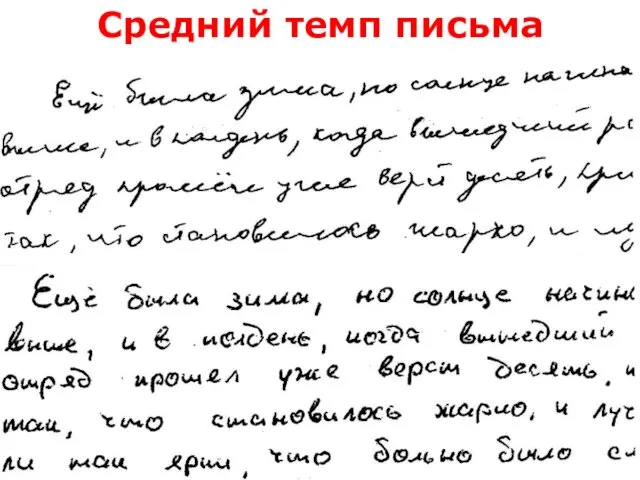 Средний темп письма
Ещё была зима, но солнце начина
выше, и в полдень, когда вышедший ра
отряд прошёл уже верст десять, при
так, что становилось жарко, и лу
Ещё была зима, но солнце начин
выше, и в полдень, когда вышедший
отряд прошел уже верст десять,
так, что становилось жарко, и луч
ли так ярки, что больно было см